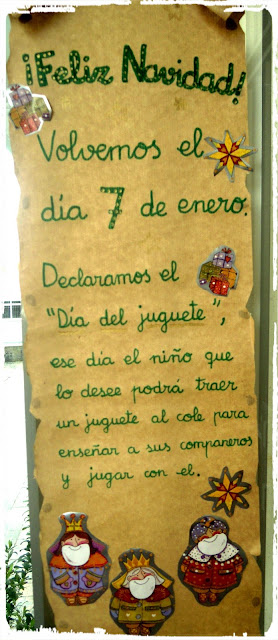 ¡Feliz Navidad!
Volvemos el
día 7 de enero.
Declaramos el
"Día del juguete",
ese día el niño que
lo desee podrá traer
un juguete al cole para
enseñar a sus companeros
y jugar con el.